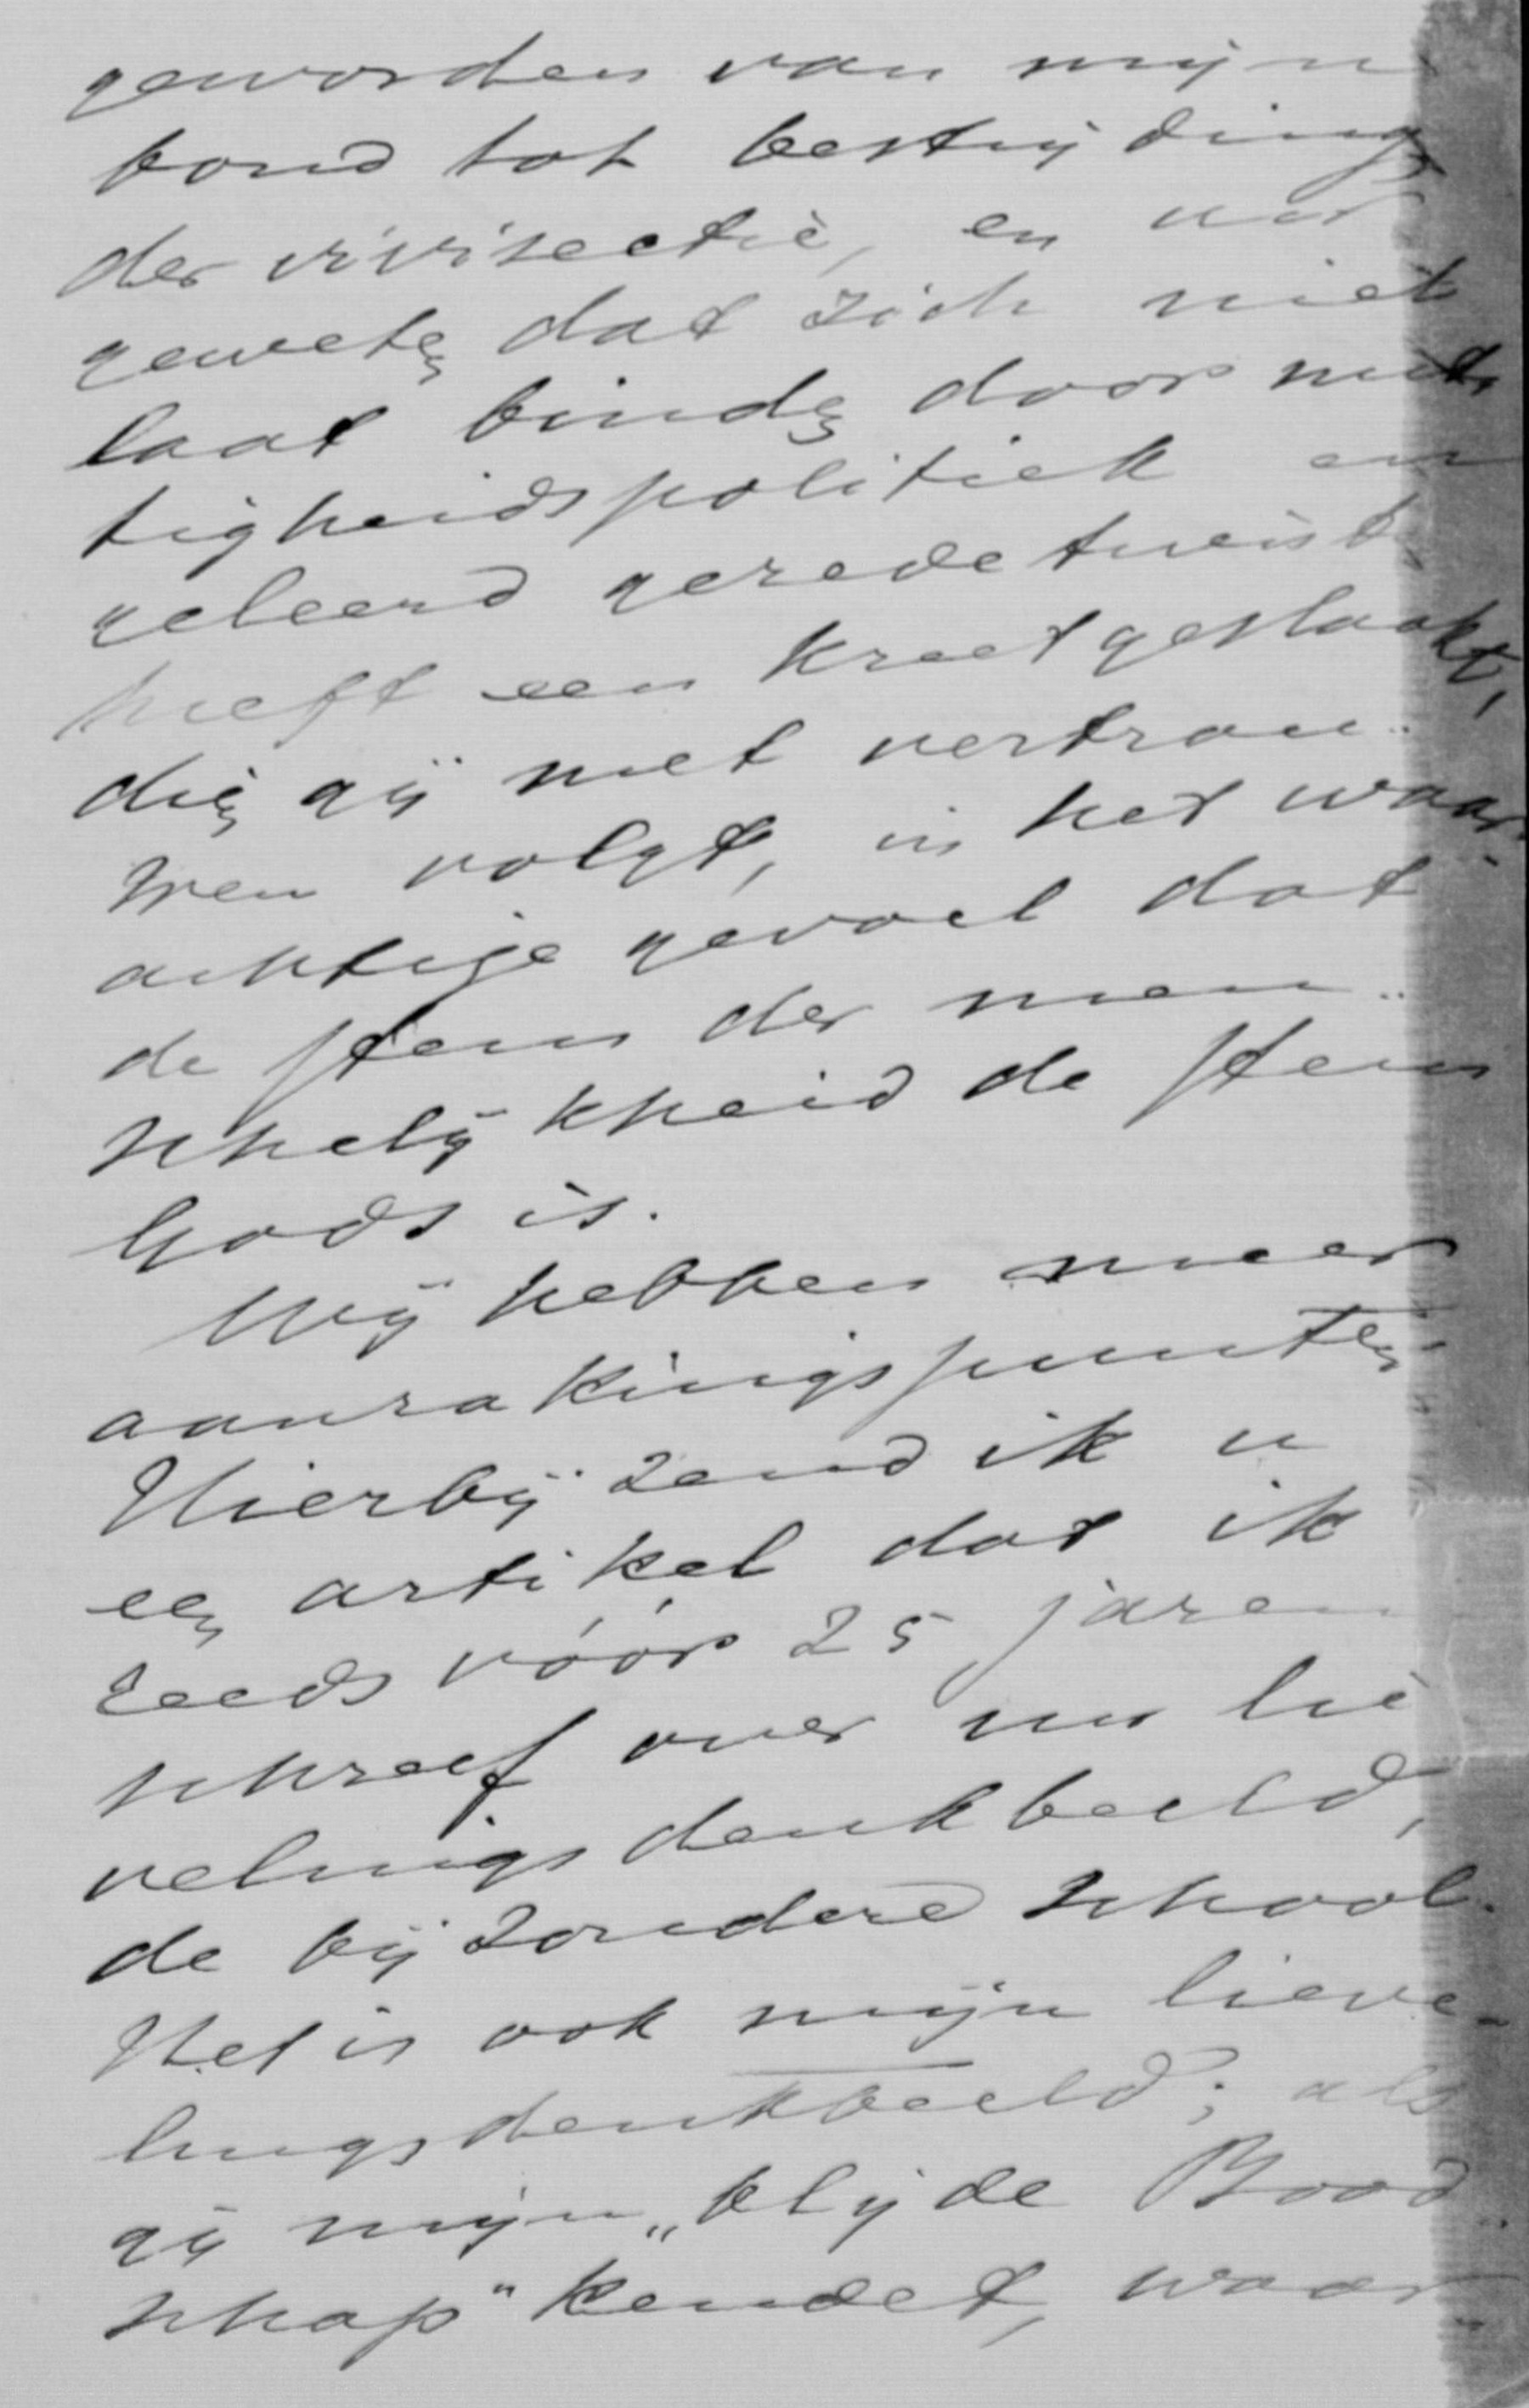 geworden van mijn
bond tot bestrijding
der vivisectie, en uw
geweten dat zich niet
laat binden door nut-
tigheidspolitiek en
geleerd geredetwist
heeft een kreet geslaakt,
dien gij met vertrou-
wen volgt, in het waar-
achtige gevoel dat
de stem der men-
schelijkheid de stem
Gods is.
Wij hebben meer
aanrakingspunten
Hierbij zend ik u
een artikel dat ik
reeds vóór 25 jaren
schreef over uw lie
velingsdenkbeeld,
de bijzondere school.
Het is ook mijn lieve-
lingsdenkbeeld; als
gij mijn „blijde Bood-
schap" kendet, waar-